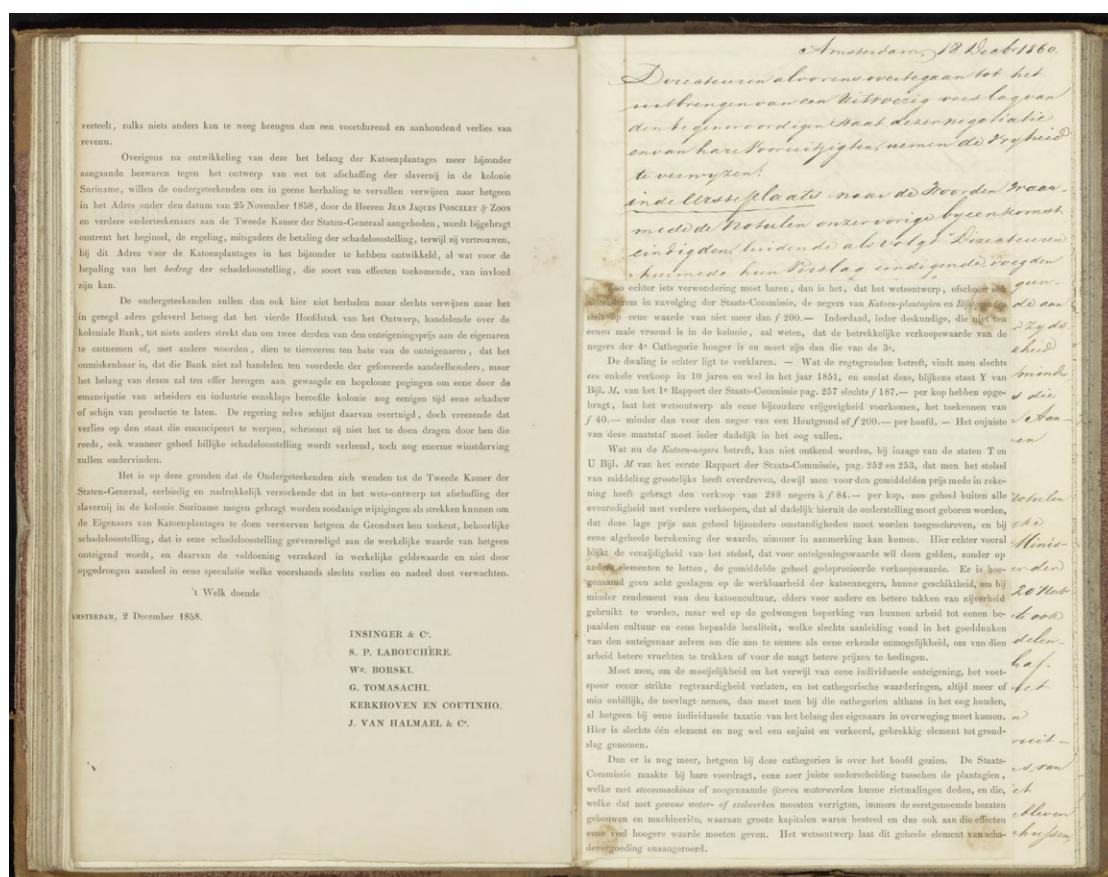 verteelt, zulks niets anders kan te weeg brengen dan een voortdurend en aanhoudend verlies van
revenu.
Overigens na ontwikkeling van deze het belang der Katoenplantages meer bijzonder
aangaande bezwaren tegen het ontwerp van wet tot afschaffing der slavernij in de kolonie
Suriname, willen de ondergeteekenden om in geene herhaling te vervallen verwijzen naar hetgeen
in het Adres onder den datum van 25 November 1858, door de Heeren JEAN JAQUES PONCELET & ZOON
en verdere onderteekenaars aan de Tweede Kamer der Staten-Generaal aangeboden, wordt bijgebragt
omtrent het beginsel, de regeling, mitsgaders de betaling der schadeloosstelling, terwijl zij vertrouwen,
bij dit Adres voor de Katoenplantages in het bijzonder te hebben ontwikkeld, al wat voor de
bepaling van het bedrag der schadeloosstelling, die soort van effecten toekomende, van invloed
zijn kan.
De ondergeteekenden zullen dan ook hier niet herhalen maar slechts verwijzen naar het
in gezegd adres geleverd betoog dat het vierde Hoofdstuk van het Ontwerp, handelende over de
koloniale Bank, tot niets anders strekt dan om twee derden van den onteigeningsprijs aan de eigenaren
te ontnemen of, met andere woorden, dien te tierceeren ten bate van de onteigenaren, dat het
onmiskenbaar is, dat die Bank niet zal handelen ten voordeele der geforceerde aandeelhouders, maar
het belang van dezen zal ten offer brengen aan gewaagde en hopelooze pogingen om eene door de
emancipatie van arbeiders en industrie eensklaps beroofde kolonie nog eenigen tijd eene schaduw
of schijn van productie te laten. De regering zelve schijnt daarvan overtuigd, doch vreezende dat
verlies op den staat die emancipeert te werpen, schroomt zij niet het te doen dragen door hen die
reeds, ook wanneer geheel billijke schadeloosstelling wordt verleend, toch nog enorme winstderving
zullen ondervinden.
Het is op deze gronden dat de Ondergeteekenden zich wenden tot de Tweede Kamer der
Staten-Generaal, eerbiedig en nadrukkelijk verzoekende dat in het wets-ontwerp tot afschaffing der
slavernij in de kolonie Suriname mogen gebragt worden zoodanige wijzigingen als strekken kunnen om
de Eigenaars van Katoenplantages te doen verwerven hetgeen de Grondwet hen toekent, behoorlijke
schadeloosstelling, dat is eene schadeloosstelling geëvenredigd aan de werkelijke waarde van hetgeen
onteigend wordt, en daarvan de voldoening verzekerd in werkelijke geldswaarde en niet door
opgedrongen aandeel in eene speculatie welke voorshands slechts verlies en nadeel doet verwachten.
't Welk doende
AMSTERDAM, 2 December 1858.
INSINGER & Co.
S. P. LABOUCHÈRE.
Wm. BORSKI.
G. TOMASACHI.
KERKHOVEN EN COUTINHO.
J. VAN HALMAEL & Co.
Amsterdam, 18 Decb. 1860.
Directeuren alvorens overtegaan tot het
uitbrengen van een Uitvoerig verslag van
den tegenwoordigen Staat dezer negotiatie
en van hare Vooruitzigten, nemen de Vryheid
te verwyzen:
in de Eerste plaats naar de Woorden Waar-
mede de Notulen onzer vorige byeenkomst
eindigden, luidende als volgt "Directeuren
hiermede hun Verslag eindigende, voegden
Zoo echter iets verwondering moet baren, dan is het, dat het wetsontwerp, ofschoon ook
alwederom in navolging der Staats-Commissie, de negers van Katoen-plantagien en Rijstgronden
stelt op eene waarde van niet meer dan f 200.— Inderdaad, ieder deskundige, die niet ten
eenen male vreemd is in de kolonie, zal weten, dat de betrekkelijke verkoopswaarde van de
negers der 4e Cathegorie hooger is en moet zijn dan die van de 3e.
De dwaling is echter ligt te verklaren. — Wat de regtsgronden betreft, vindt men slechts
een enkele verkoop in 10 jaren en wel in het jaar 1851, en omdat deze, blijkens staat Y van
Bijl. M. van het 1e Rapport der Staats-Commissie pag. 257 slechts f 187.— per kop hebben opge-
bragt, laat het wetsontwerp als eene bijzondere vrijgevigheid voorkomen, het toekennen van
f 40.— minder dan voor den neger van een Houtgrond of f 200.— per hoofd. — Het onjuiste
van deze maatstaf moet ieder dadelijk in het oog vallen.
Wat nu de Katoen-negers betreft, kan niet ontkend worden, bij inzage van de staten T en
U Bijl. M van het eerste Rapport der Staats-Commissie, pag. 252 en 253, dat men het stelsel
van middeling grootelijks heeft overdreven, dewijl men voor den gemiddelden prijs mede in reke-
ning heeft gebragt den verkoop van 288 negers à f 64.— per kop, zoo geheel buiten alle
evenredigheid met verdere verkoopen, dat al dadelijk hieruit de onderstelling moet geboren worden,
dat deze lage prijs aan geheel bijzondere omstandigheden moet worden toegeschreven, en bij
eene algeheele berekening der waarde, nimmer in aanmerking kan komen. Hier echter vooral
blijkt de eenzijdigheid van het stelsel, dat voor onteigeningswaarde wil doen gelden, zonder op
andere elementen te letten, de gemiddelde geheel gedeprecieerde verkoopswaarde. Er is hoe-
genaamd geen acht geslagen op de werkbaarheid der katoennegers, hunne geschiktheid, om bij
minder rendement van den katoencultuur, elders voor andere en betere takken van nijverheid
gebruikt te worden, maar wel op de gedwongen beperking van hunnen arbeid tot eenen be-
paalden cultuur en eene bepaalde localiteit, welke slechts aanleiding vond in het goeddunken
van den onteigenaar zelven om die aan te nemen als eene erkende onmogelijkheid, om van dien
arbeid betere vruchten te trekken of voor de magt betere prijzen te bedingen.
Moet men, om de moeijelijkheid en het verwijl van eene individueele onteigening, het voet-
spoor eener strikte regtvaardigheid verlaten, en tot cathegorische waarderingen, altijd meer of
min onbillijk, de toevlugt nemen, dan moet men bij die cathegorien althans in het oog houden,
al hetgeen bij eene individueele taxatie van het belang des eigenaars in overweging moet komen.
Hier is slechts één element en nog wel een onjuist en verkeerd, gebrekkig element tot grond-
slag genomen.
Dan er is nog meer, hetgeen bij deze cathegorien is over het hoofd gezien. De Staats-
Commissie maakte bij hare voordragt, eene zeer juiste onderscheiding tusschen de plantagien,
welke met stoommachines of zoogenaamde ijzeren waterwerken hunne rietmalingen deden, en die,
welke dat met gewone water- of ezelwerken moesten verrigten, immers de eerstgenoemde bezaten
gebouwen en machineriën, waaraan groote kapitalen waren besteed en dus ook aan die effecten
eene veel hoogere waarde moeten geven. Het wetsontwerp laat dit geheele element van scha-
devergoeding onaangeroerd.